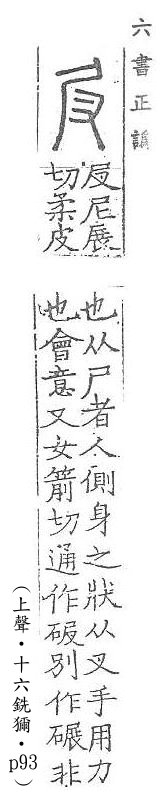 六書正譌
㞋尼展
切柔皮
也从尸者人側身之狀从叉手用力
也會意又女箭切通作別作碾非
（上聲・十六銑獮・p93）